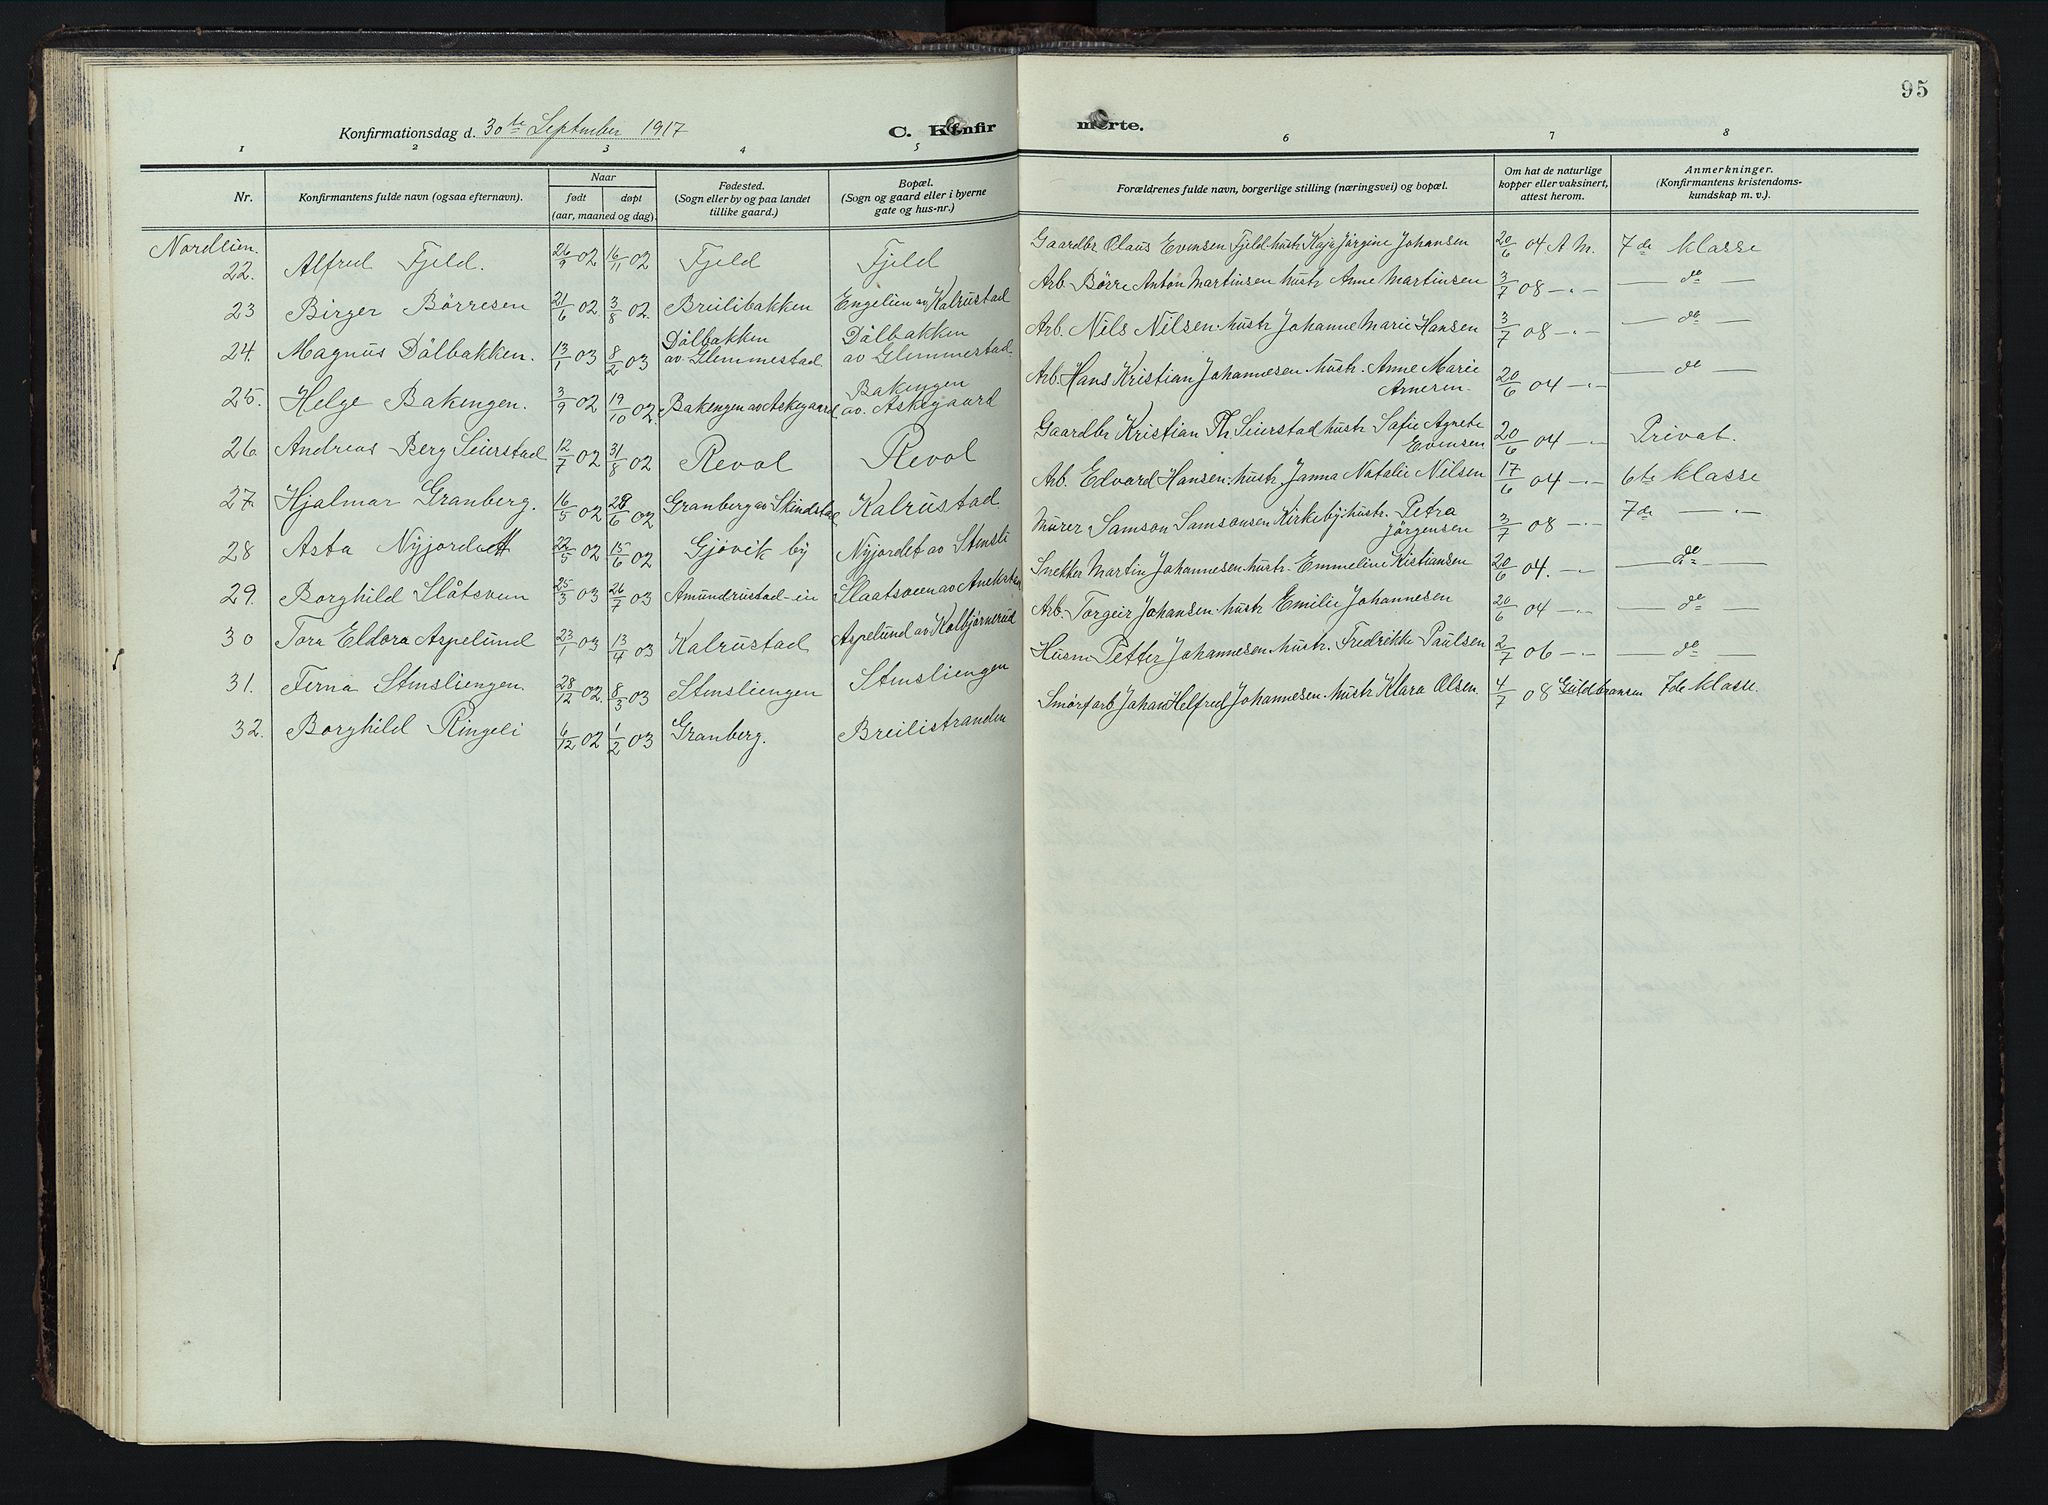 95
Konfirmationsdag d. 30te September 1917
C. Konfirmerte.
1 2 3 4 5 6 7 8
Nr.
Konfirmantens fulde navn (ogsaa efternavn).
Naar
født døpt
(aar, maaned og dag).
Fødested.
(Sogn eller by og paa landet
tillike gaard.)
Bopæl.
(Sogn og gaard eller i byerne
gate og hus-nr.)
Forældrenes fulde navn, borgerlige stilling (næringsvei) og bopæl.
Om hat de naturlige
kopper eller vaksinert,
attest herom.
Anmerkninger.
(Konfirmantens kristendoms-
kundskap m. v.).
Nordlien.
22. Alfred Fjeld. 26/9 02 16/11 02 Fjeld Fjeld Gaardbr Olaus Evensen Fjeld hustr Kaja Jørgine Johansen 20/6 04 A M. 7de klasse
23 Birger Börresen 21/6 02 3/8 02. Breilibakken Engelien av Kalrustad Arb. Börre Anton Martinsen hustr Anne Martinsen 3/7 08 -"- — do —
24. Magnus Dölbakken. 13/1 03 8/2 03 Dölbakken av Glemmestad. Dölbakken av Glemmestad. Arb. Nils Nilsen. hustr Johanne Marie Hansen 3/7 08 -"- — do —
25. Helge Bakengen. 3/9 02 19/10 02. Bakengen av Askegaard Bakengen av. Askegaard Arb. Hans Kristian Johannesen hustr. Anne Marie Arnesen. 20/6 04 -"- — do —
26 Andreas Berg Seierstad 12/7 02 31/8 02 Revol Revol Gaardbr Kristian Th Seierstad hustr Safie Agnete Evensen 20/6 04 -"- Privat.
27. Hjalmar Granberg. 16/5 02 28/6 02 Granberg av Skindstad Kalrustad. Arb. Edvard Hansen. hustr. Janna Natalie Nilsen 17/6 04 -"- 6te klasse
28 Asta Nyjordet 22/5 02 15/6 02 Gjövik by Nyjordet av Stensli Murer Samson Samsonsen Kirkeby. hustr. Petra Jörgensen 3/7 08 -"- 7de — " —
29. Borghild Slåtsveen 25/3 03 26/7 03 Amundrustad-ei Slaatsveen av Snekker Martin Johannesen hustr. Emmeline Kristiansen 20/6 04. -"- — do —
30 Tora Eldora Aspelund 23/1 03 13/4 03 Kalrustad Aspelund av Kolbjørnerud Arb. Torgeir Johansen. hustr Emilie Johannesen 20/6 04 -"- — do —
31. Ferna Stensliengen. 28/12 02. 8/3 03 Stensliengen Stensliengen Husm Petter Johannesen hustr. Fredrekke Paulsen 2/7 06 -"- — do —
32. Borghild Ringeli 6/12 02 1/2 03 Granberg. Breilistranden Smörfarb Johan Helfred Johannesen. hustr Klara Olsen. 4/7 08 Guldbransen 7de klasse.